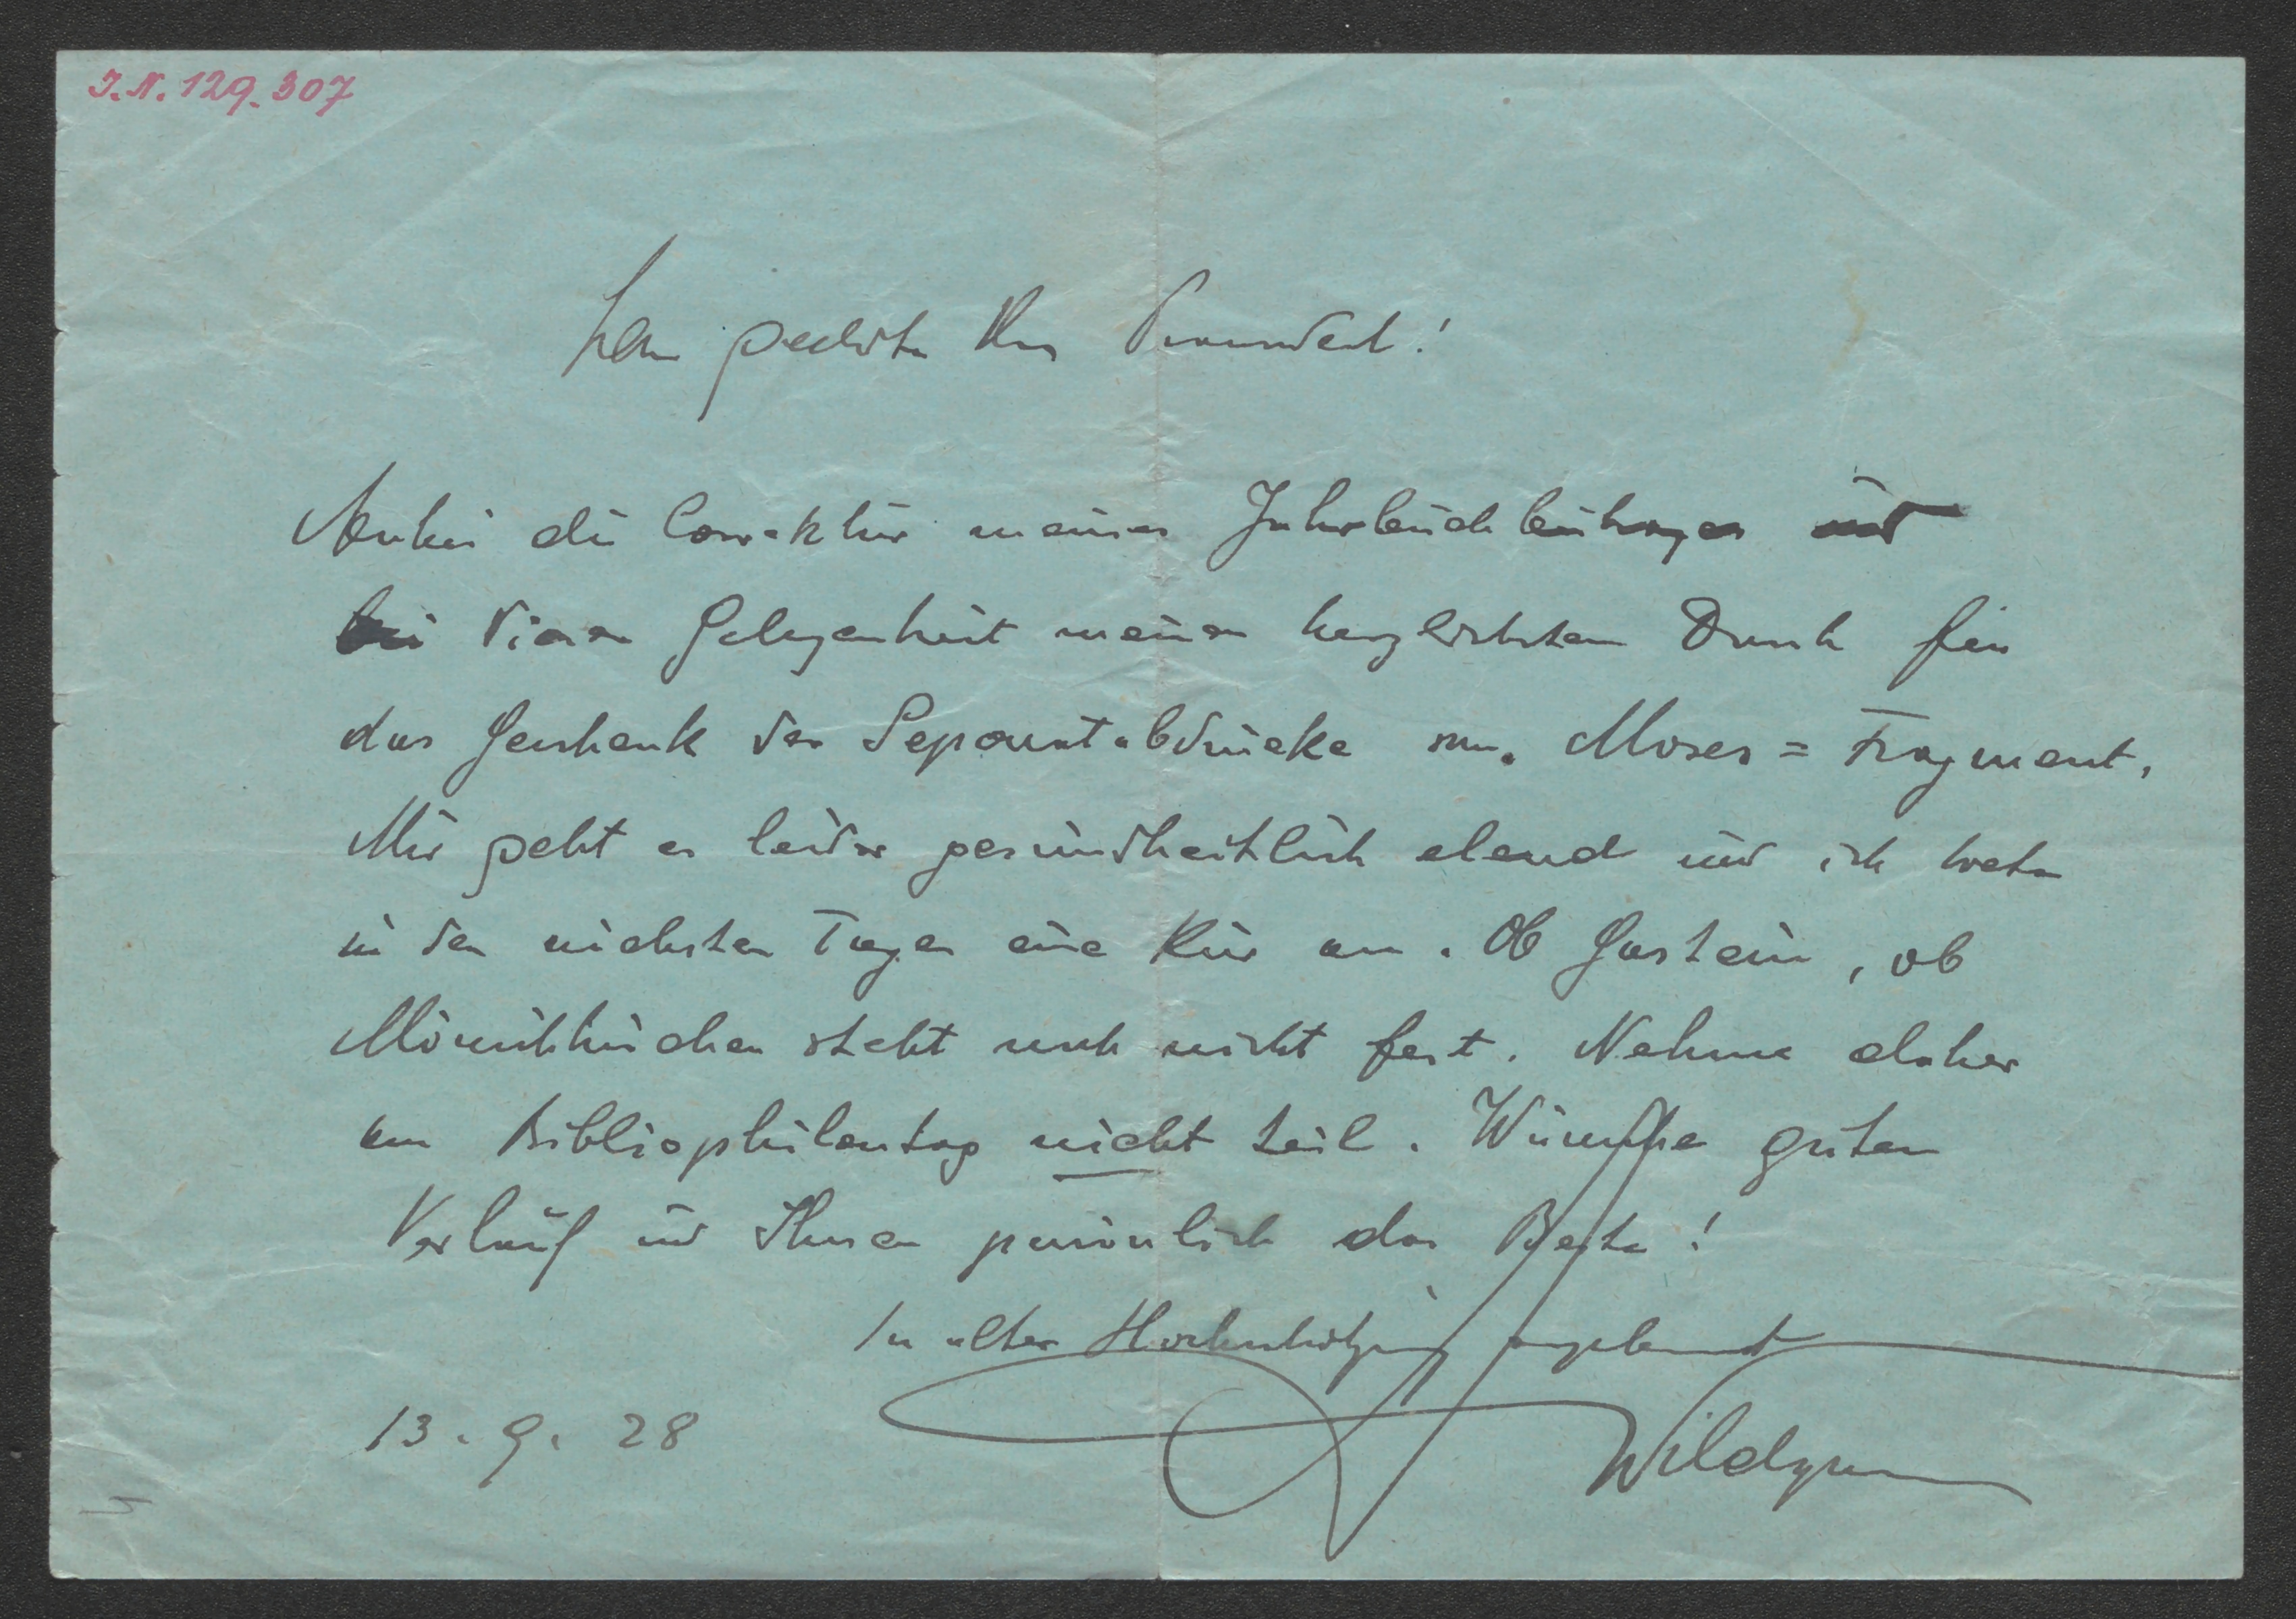 I.N. 129.307
Sehr geehrter Herr
Anbei die Correktur meines Jahrbuchbeitrages und
bei dieser Gelegenheit meinen herzlichsten Dank für
das Geschenk der Separatabdrücke m. Moses = Fragment.
Mir geht es leider gesundheitlich elend und ich trete
in den nächsten Tagen eine Kur an. Ob Gastein, ob
Mönichkirchen steht noch nicht fest. Nehme daher
am Bibliophilentag nicht teil. Wünsche guten
Verlauf und Ihnen persönlich das Beste!
In alter Hochschätzung ergebenst
Wildgans
13. 9. 28